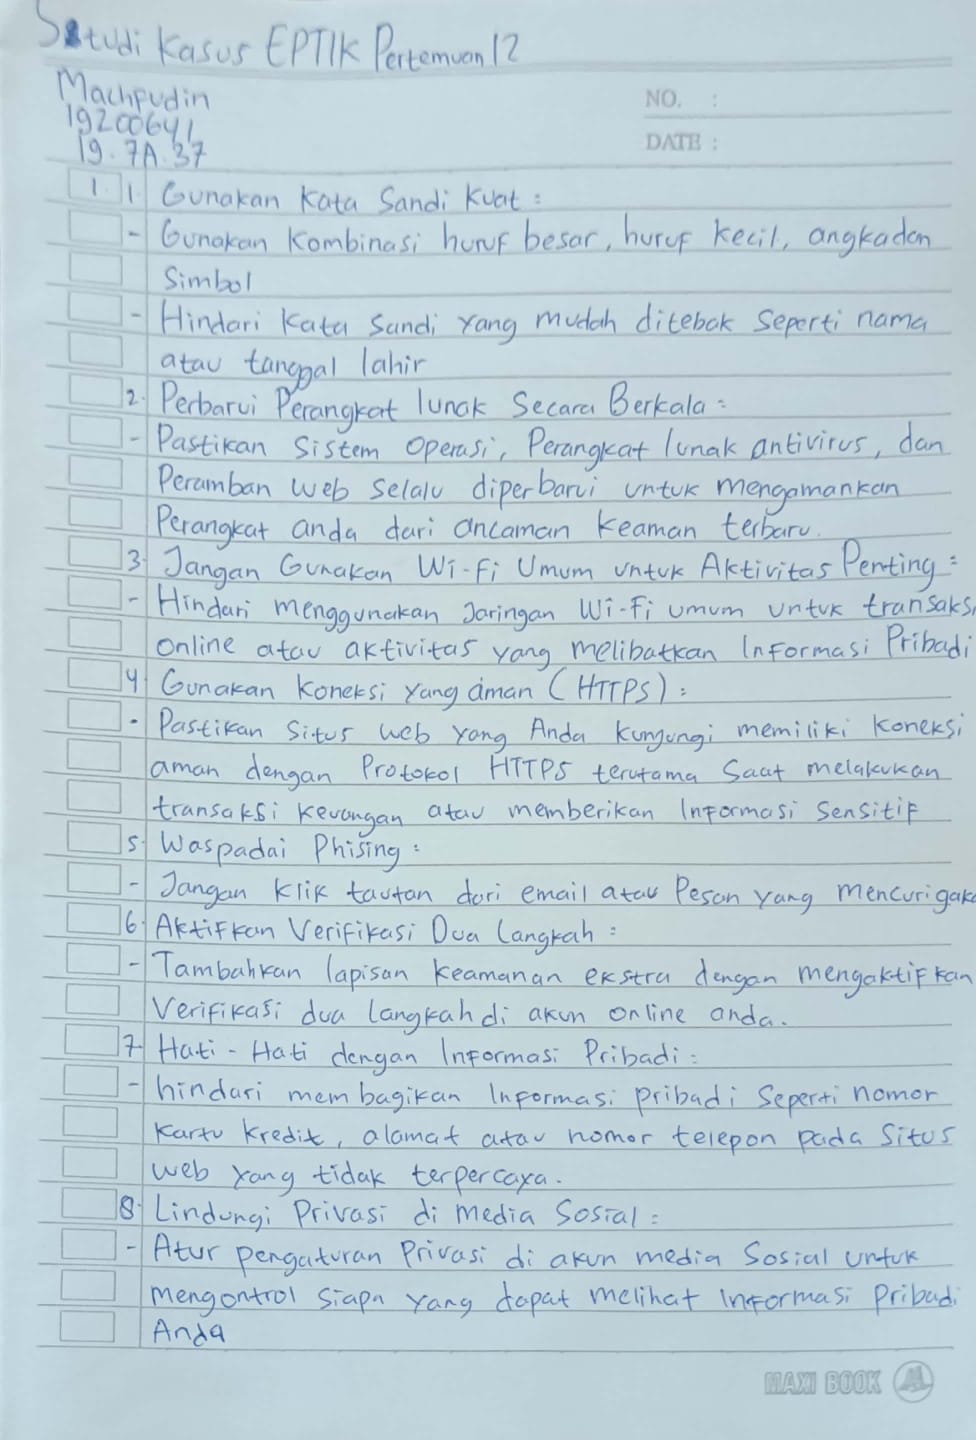 Studi Kasus EPTIK Pertemuan 12
Machpudin
19200641
19.7A.37
NO. :
DATE :
1. 1. Gunakan Kata Sandi Kuat :
- Gunakan Kombinasi huruf besar, huruf kecil, angka dan
Simbol
- Hindari Kata Sandi yang mudah ditebak Seperti nama
atau tanggal lahir
2. Perbarui Perangkat lunak Secara Berkala :
- Pastikan Sistem Operasi, Perangkat lunak antivirus, dan
Peramban Web Selalu diperbarui untuk mengamankan
Perangkat anda dari ancaman Keaman terbaru.
3. Jangan Gunakan Wi-Fi Umum untuk Aktivitas Penting :
- Hindari menggunakan Jaringan Wi-Fi umum untuk transaksi
online atau aktivitas yang melibatkan Informasi Pribadi
4. Gunakan Koneksi yang aman (HTTPS) :
- Pastikan Situs web yang Anda kunjungi memiliki Koneksi
aman dengan Protokol HTTPS terutama Saat melakukan
transaksi Keuangan atau memberikan Informasi Sensitif
5. Waspadai Phising :
- Jangan Klik tautan dari email atau Pesan yang mencurigaka
6. Aktifkan Verifikasi Dua Langkah :
- Tambahkan lapisan Keamanan ekstra dengan mengaktifkan
Verifikasi dua langkah di akun online anda.
7. Hati - Hati dengan Informasi Pribadi :
- hindari membagikan Informasi pribadi Seperti nomor
Kartu Kredit, alamat atau nomor telepon pada Situs
web yang tidak terpercaya.
8. Lindungi Privasi di media Sosial :
- Atur pengaturan Privasi di akun media Sosial untuk
mengontrol Siapa yang dapat melihat Informasi Pribadi
Anda
MAXI BOOK